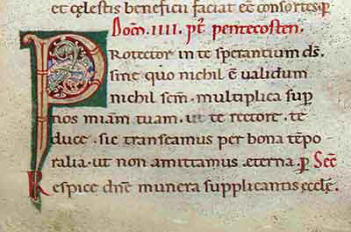 et cęlestis beneficii faciat eē consortes.ꝑ
Dom̄. IIII. pt̄. pentecosten.
Protector in te sperantium d̄s.
sine quo nichil ē ualidum
nichil sc̄m. multiplica suꝑ
nos miam̄ tuam. ut te rectore. te
duce. sic transeamus per bona tēpo
ralia. ut non amittamus ęterna. ꝑ Sec̄
Respice dn̄e munera supplicantis ęcclę.